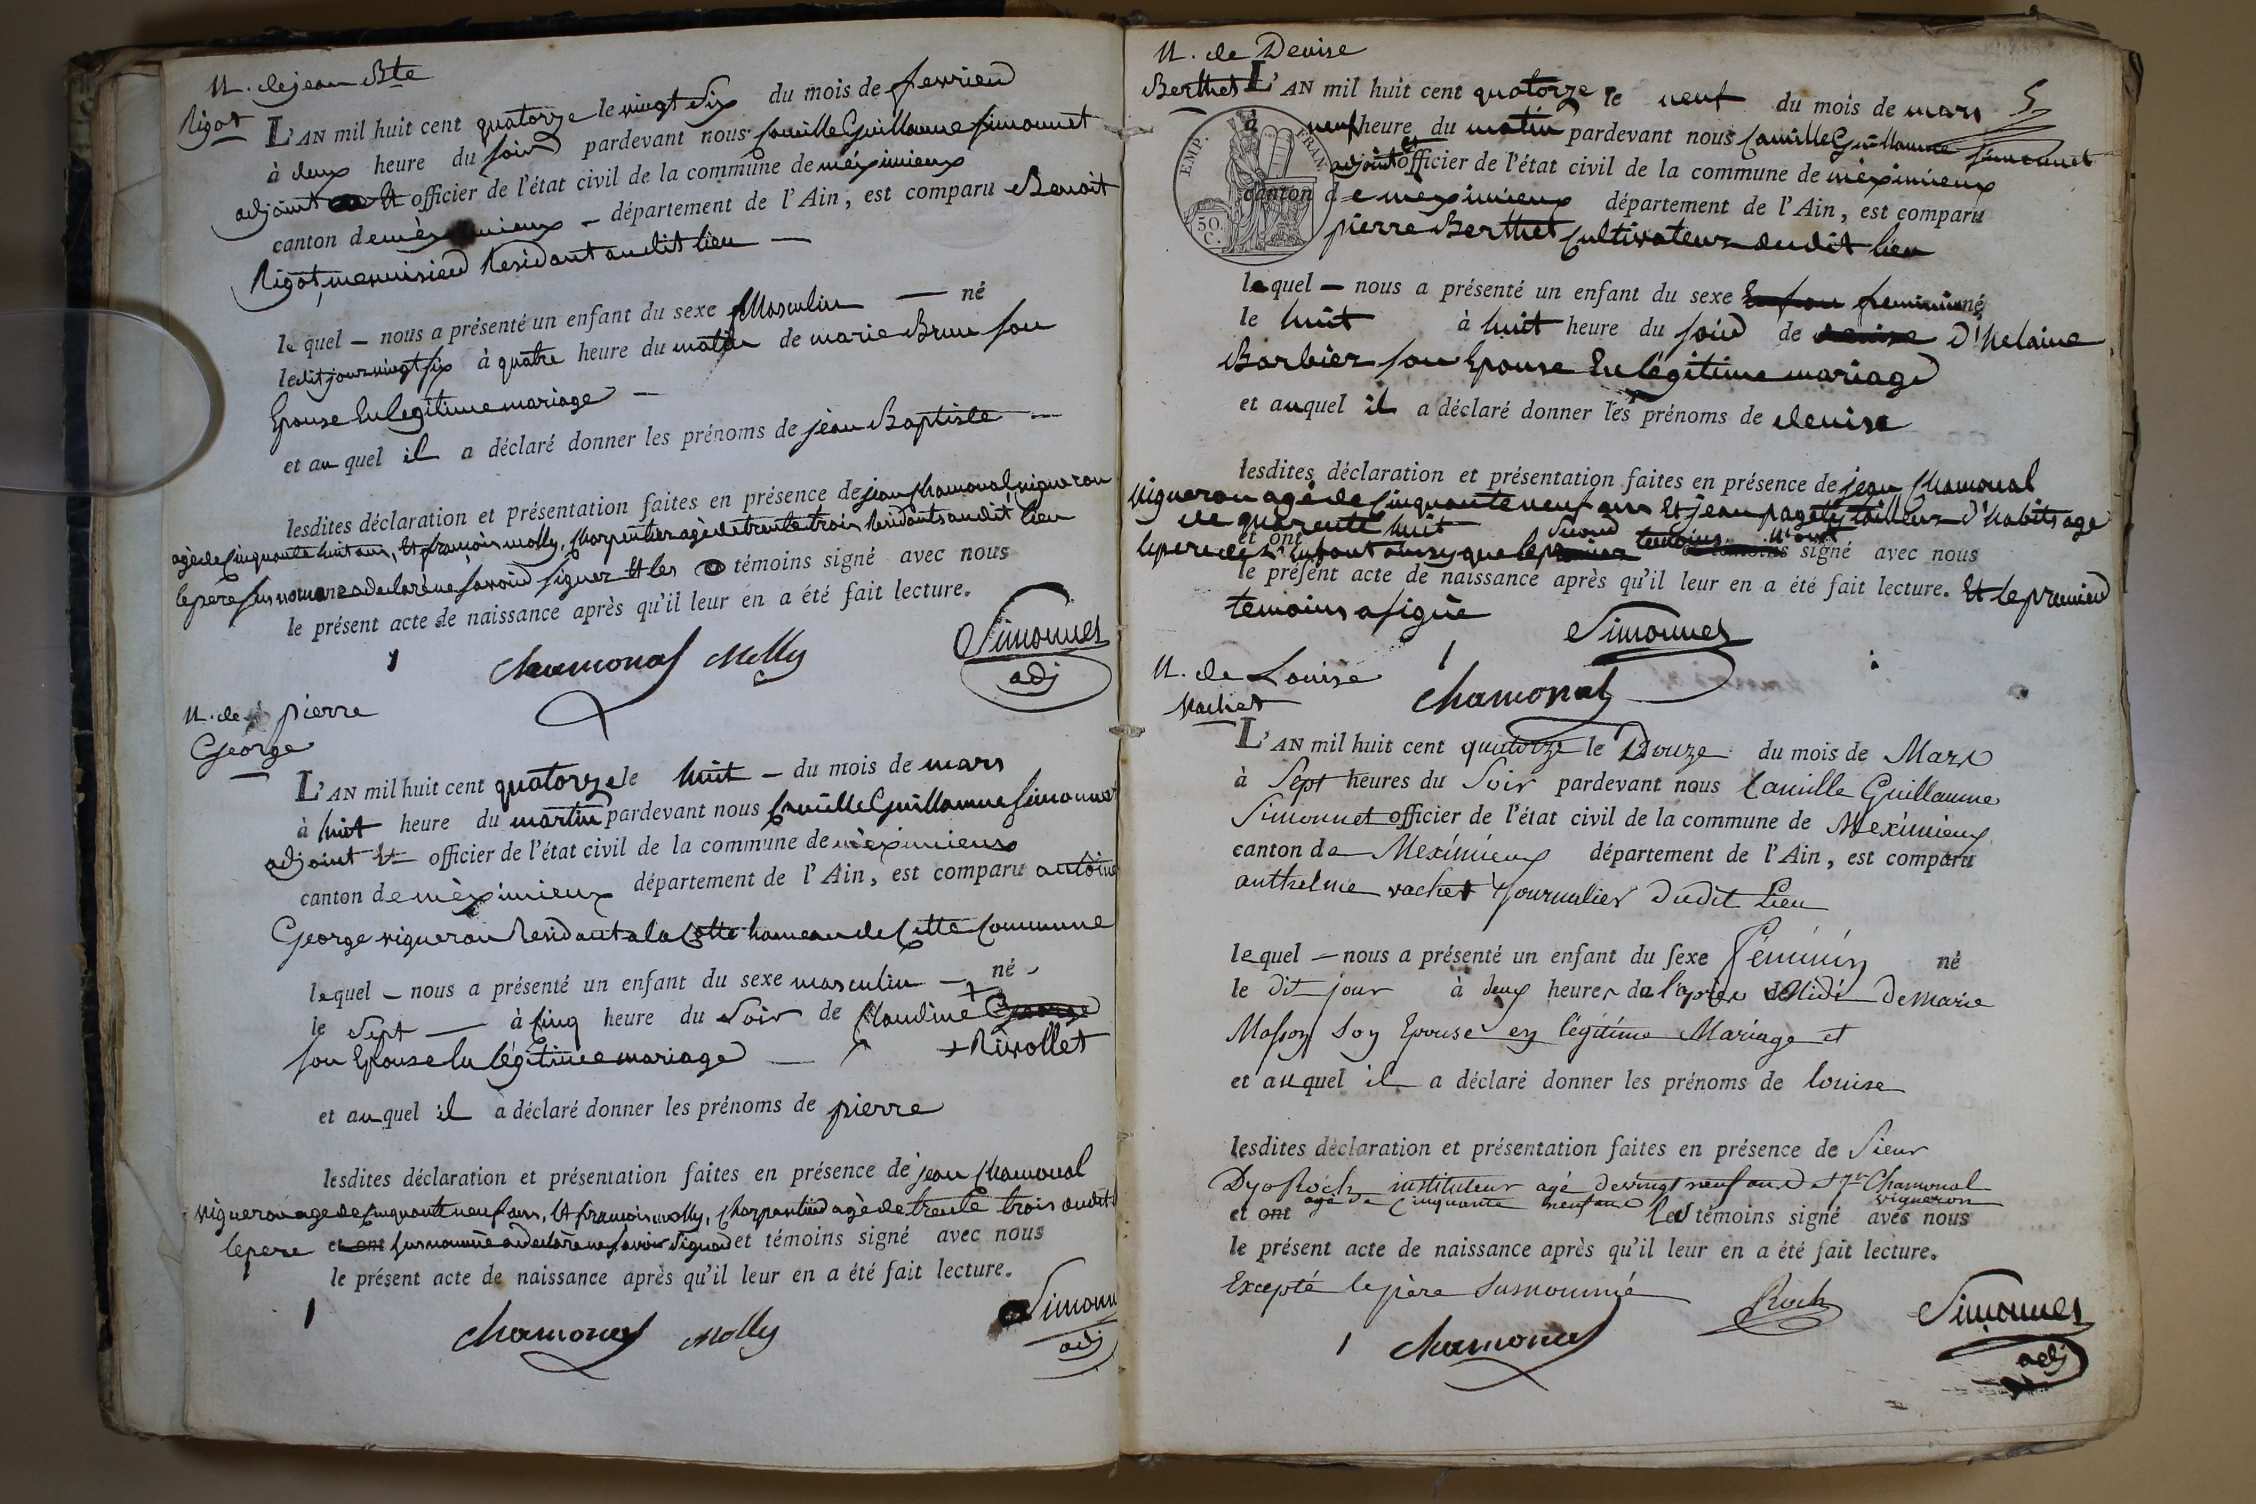 N. de jean Bte
Rigot
L'AN mil huit cent quatorze le vingt six du mois de fevrier
à deux heure du soir pardevant nous Camille Guillaume Simonnet
adjoint Et officier de l'état civil de la commune de méximieux
canton de méximieux — département de l'Ain, est comparu Benoit
Rigot, menuisier Residant audit lieu —
lequel — nous a présenté un enfant du sexe Masculin — né
ledit jour vingt six à quatre heure du matin de marie Brun son
Epouse En legitime mariage —
et auquel il a déclaré donner les prénoms de jean Baptiste —
lesdites déclaration et présentation faites en présence de jean Chamonal vigneron
agé de Cinquante huit ans, Et françois molly, Charpentier agé de trente trois Residants audit lieu
le pere sus nommé a declaré ne savoir signer Et les témoins signé avec nous
le présent acte de naissance après qu'il leur en a été fait lecture.
Chamonal Molly Simonnet
adj
N. de pierre
George
L'AN mil huit cent quatorze le huit — du mois de mars
à huit heure du martin pardevant nous Camille Guillaume Simonnet
adjoint Et officier de l'état civil de la commune de méximieux
canton de méximieux département de l'Ain, est comparu antoine
George vigneron Residant a la Cotte hameau de Cette Commune
lequel — nous a présenté un enfant du sexe masculin — né
le sept — à Cinq heure du Soir de Claudine + George
son Epouse En légitime mariage — + Rivollet
et auquel il a déclaré donner les prénoms de pierre
lesdites déclaration et présentation faites en présence de jean Chamonal
vigneron age de Cinquante neuf ans, Et françois molly, Charpentier agè de trente trois audit
le pere et ont susnommé a declaré ne savoir Signer et témoins signé avec nous
le présent acte de naissance après qu'il leur en a été fait lecture.
Chamonal Molly Simonn
adj
N. de Denise
Berthet
5
L'AN mil huit cent quatorze le neuf du mois de mars
à neuf heure du matin pardevant nous Camille Guillaume Simonnet
adjoint et officier de l'état civil de la commune de méximieux
canton de meximieux département de l'Ain, est comparu
pierre Berthet Cultivateur dudit lieu
EMP. FRAN.
50 C.
lequel — nous a présenté un enfant du sexe feminin né
le huit à huit heure du soir de denise D'helaine
Barbier son Epouse En légitime mariage
et auquel il a déclaré donner les prénoms de denise
lesdites déclaration et présentation faites en présence de jean Chamonal
vigneron agè de Cinquante neuf ans Et jean pagety tailleur d'habits age
de quarente huit
et ont second temoins n'ont
le pere de l'Enfant ainsy que le premier témoins signé avec nous
le présent acte de naissance après qu'il leur en a été fait lecture. Et le premier
temoins a signè
Simonnet
Chamonal
N. de Louise
Vachet
L'AN mil huit cent quatorze le Douze du mois de Mars
à Sept heures du Soir pardevant nous Camille Guillaume
Simonnet officier de l'état civil de la commune de Meximieux
canton de Meximieux département de l'Ain, est comparu
anthelme vachet Journalier dudit Lieu
lequel — nous a présenté un enfant du sexe Féminin né
le dit jour à deux heures de l'après Midi de Marie
Masson son Epouse en légitime Mariage et
et auquel il a déclaré donner les prénoms de louise
lesdites déclaration et présentation faites en présence de Sieur
Roch instituteur agé de vingt neuf ans et Jn Chamonal
agé de Cinquante neuf ans vigneron
et ont Les témoins signé avec nous
le présent acte de naissance après qu'il leur en a été fait lecture.
Excepté le père susnommé
Roch Simonnet
Chamonal adj